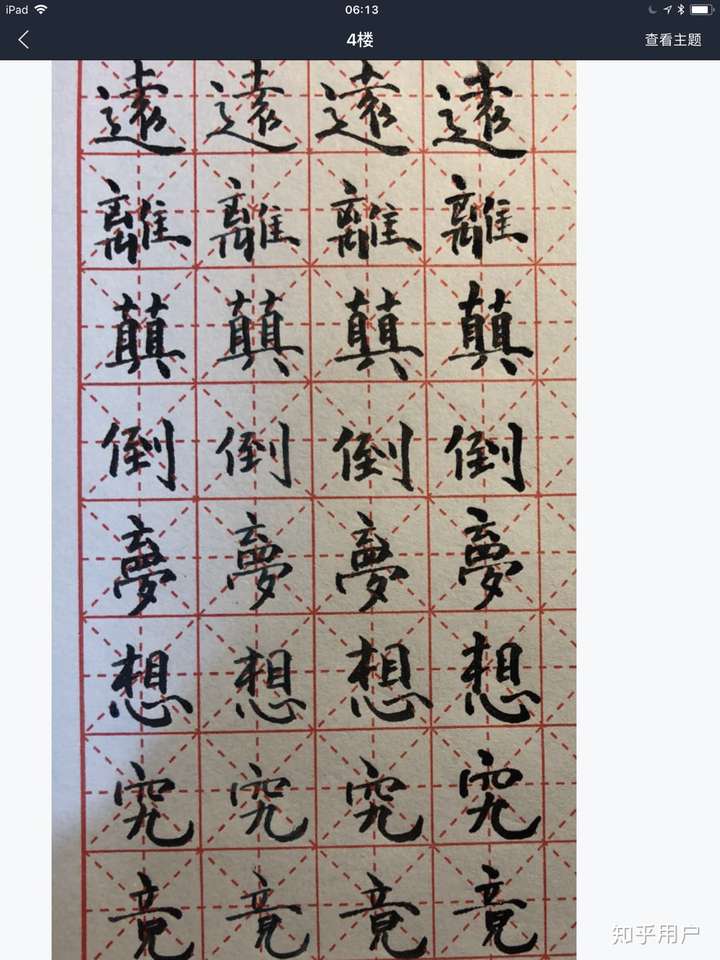 iPad 06:13
4楼 查看主题
遠 遠 遠 遠
離 離 離 離
顛 顛 顛 顛
倒 倒 倒 倒
夢 夢 夢 夢
想 想 想 想
究 究 究 究
竟 竟 竟 竟
知乎用户